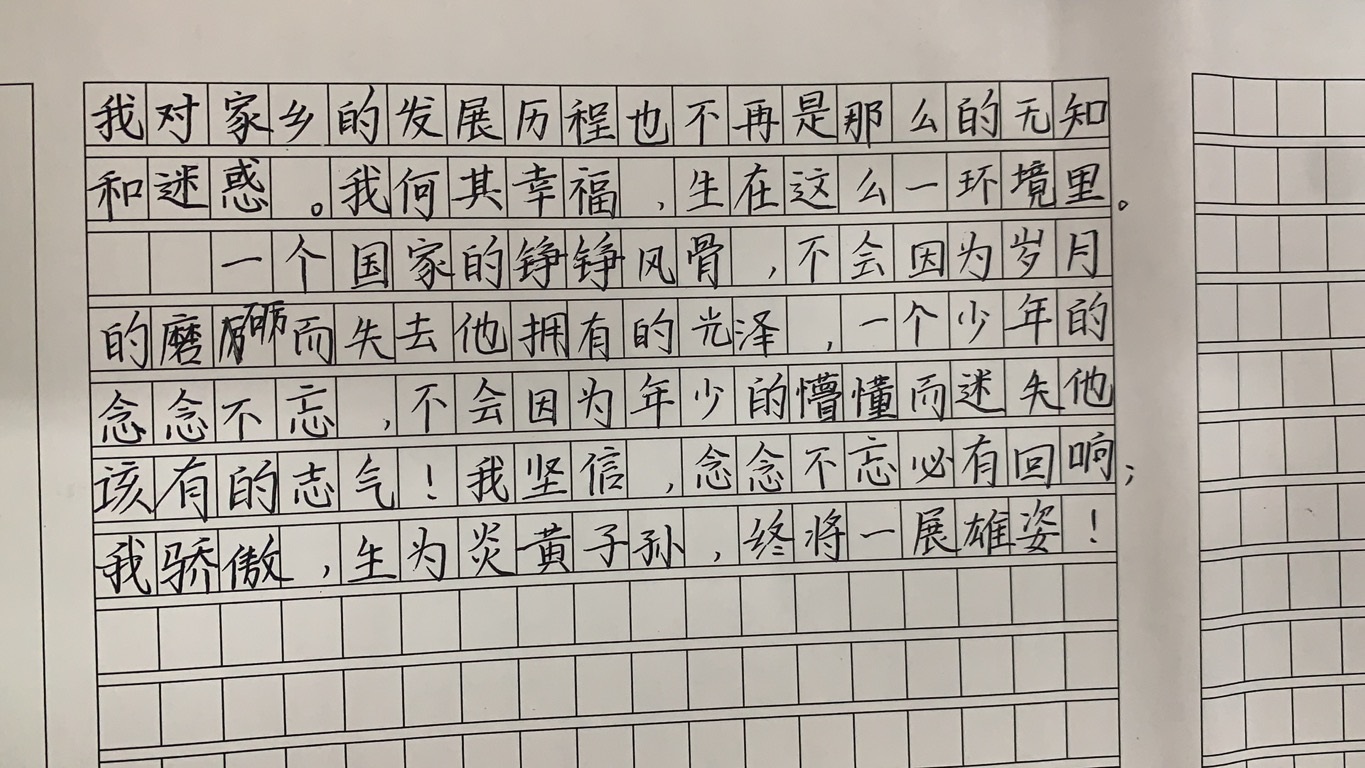 我对家乡的发展历程也不再是那么的无知
和迷惑。我何其幸福,生在这么一环境里。
一个国家的铮铮风骨,不会因为岁月
的磨砺而失去他拥有的光泽,一个少年的
念念不忘,不会因为年少的懵懂而迷失他
该有的志气!我坚信,念念不忘必有回响;
我骄傲,生为炎黄子孙,终将一展雄姿!